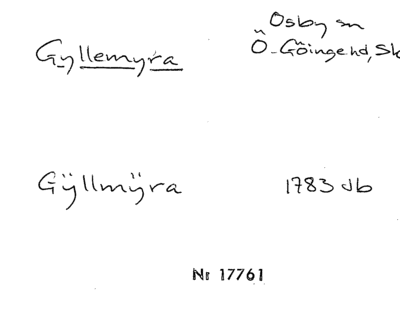 Gyllemyra
Osby sn
Ö-Göingehd, Sk
Gÿllmÿra
1783 Jb
Nr 17761